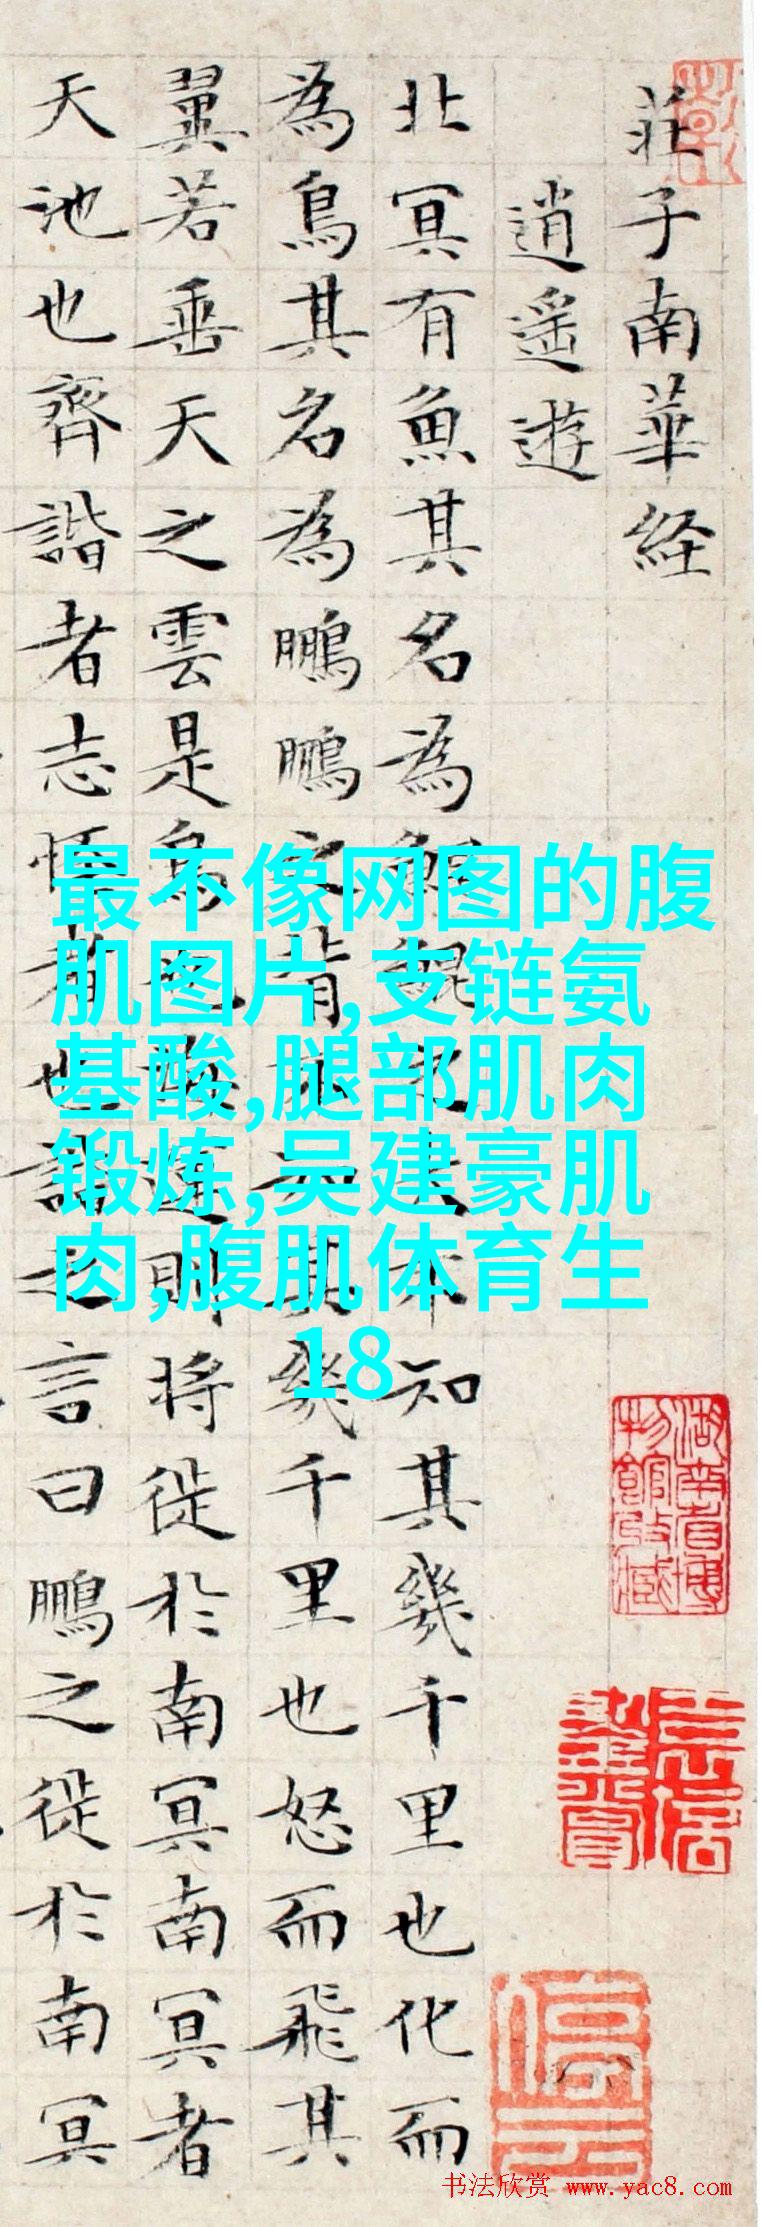 莊子南華経
逍遥遊
北冥有魚其名為鯤鯤之大不知其幾千里也化而
為鳥其名為鵬鵬之背不知其幾千里也怒而飛其
翼若垂天之雲是鳥也海運則将徙於南冥南冥者
天池也齊諧者志怪者也諧之言曰鵬之徙於南冥
最不像网图的腹
肌图片,支链氨
基酸,腿部肌肉
锻炼,吴建豪肌
肉,腹肌体育生
18
湖南省博
物館收藏
书法欣赏 www.yac8.com